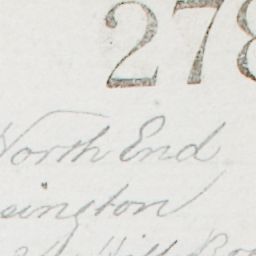 278
North End
sington
Hill Roa